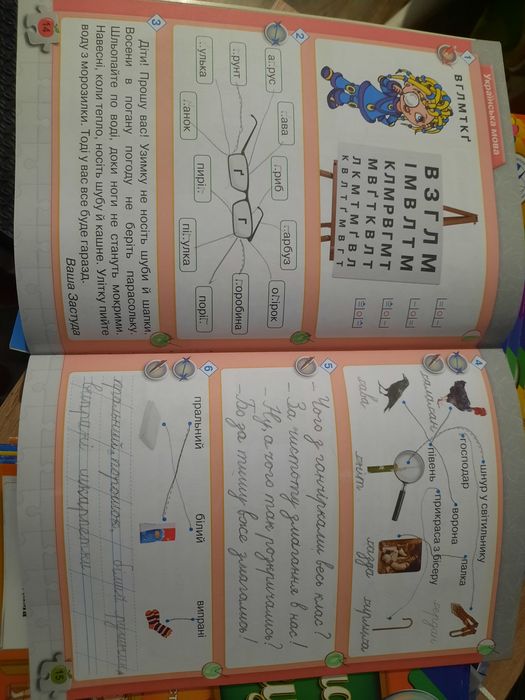 Українська мова
1
В Г Л М Т К Ґ
В З Г Л М
І М В Л Т М
К Л М Р В Г М Т
М В Г Т К В Л Т
Л К М Т М Г В Л
К В Л Т Г М В Г Т
2
а..рус
..ава
..риб
..арбуз
о..ірок
..рунт
..улька
..анок
пирі..
пі..улка
порі..
..оробина
ґ
г
3
Діти! Прошу вас! Узимку не носіть шуби й шапки.
Восени в погану погоду не беріть парасольку.
Шльопайте по воді, доки ноги не стануть мокрими.
Навесні, коли тепло, носіть шубу й кашне. Улітку пийте
воду з морозилки. Тоді у вас все буде гаразд.
Ваша Застуда
14
4
шнур у світильнику
господар
ворона
палка
півень
прикраса з бісеру
ґава
ґніт
ґазда
ґердан
ґирлиґа
5
– Чого з ганчірками весь клас?
– За чистоту змагання в нас!
– Ну а чого так розкричались?
– Бо да тишу вже змагались!
6
пральний
білий
випрані
пральний порошок, білий
випрані шкарпетки
15